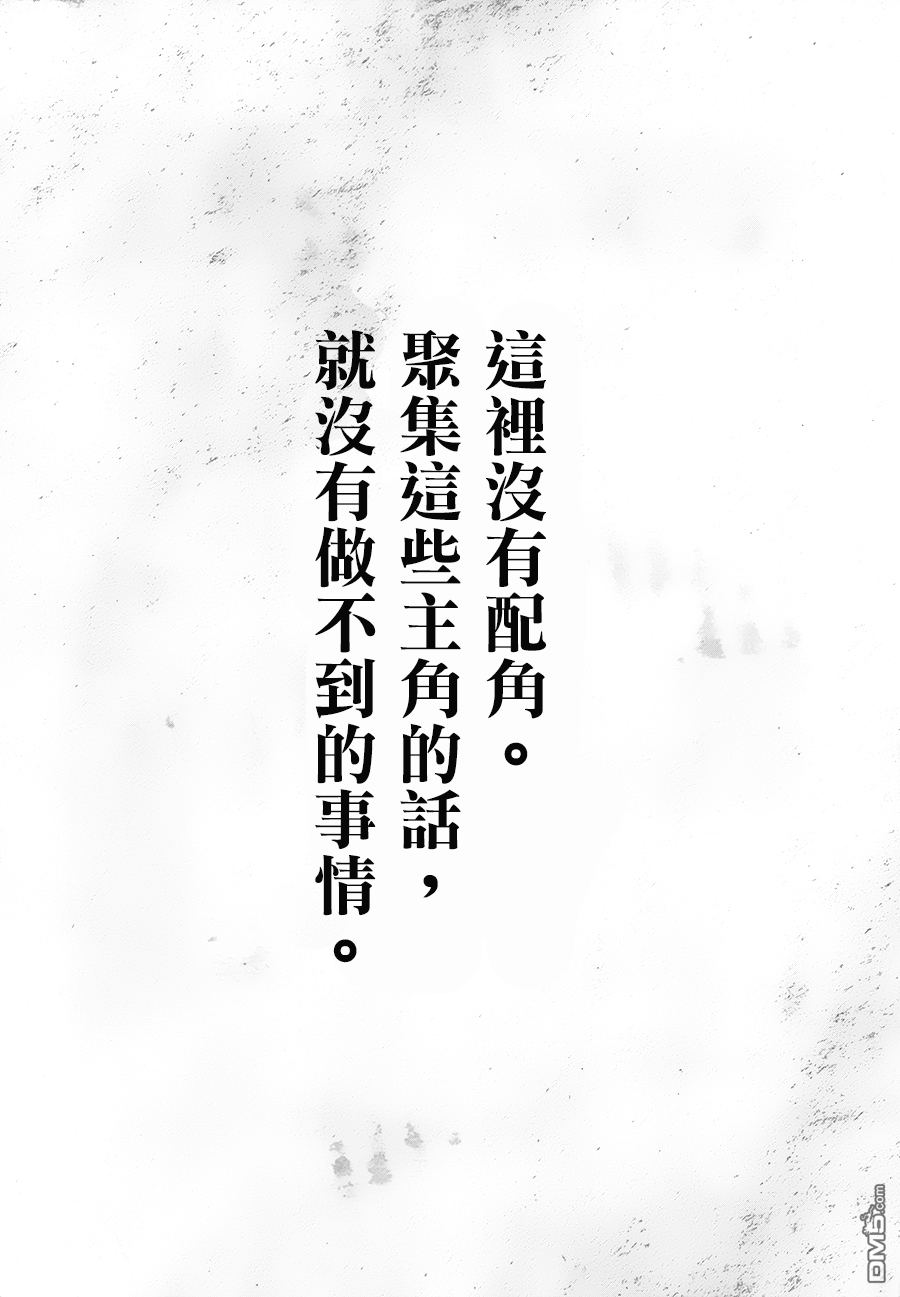 這裡沒有配角。
聚集這些主角的話，
就沒有做不到的事情。
DM5.com